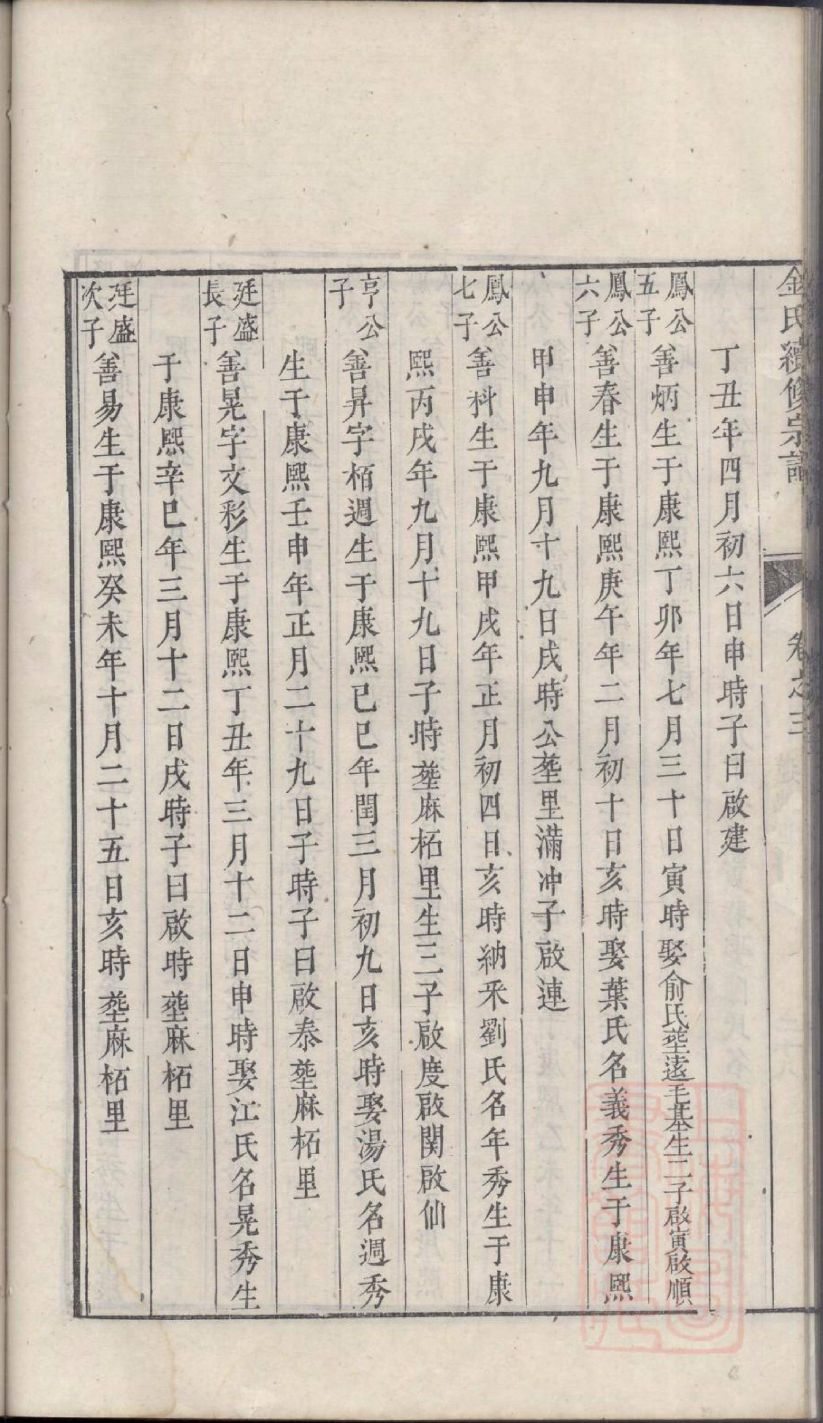 金氏續修宗譜 卷之三
丁丑年四月初六日申時子曰啟建
鳳公五子 善炳生于康熙丁卯年七月三十日寅時娶俞氏塟遠毛基生二子啟寅啟順
鳳公六子 善春生于康熙庚午年二月初十日亥時娶葉氏名義秀生于康熙
甲申年九月十九日戌時公塟里滿冲子啟連
鳳公七子 善科生于康熙甲戌年正月初四日亥時納釆劉氏名年秀生于康
熙丙戌年九月十九日子時塟麻柘里生三子啟度啟関啟仙
亨公子 善昇字栢週生于康熙己巳年閏三月初九日亥時娶湯氏名週秀
生于康熙壬申年正月二十九日子時子曰啟泰塟麻柘里
廷盛長子 善晃字文彩生于康熙丁丑年三月十二日申時娶江氏名晃秀生
于康熙辛巳年三月十二日戌時子曰啟時塟麻柘里
廷盛次子 善易生于康熙癸未年十月二十五日亥時塟麻柘里